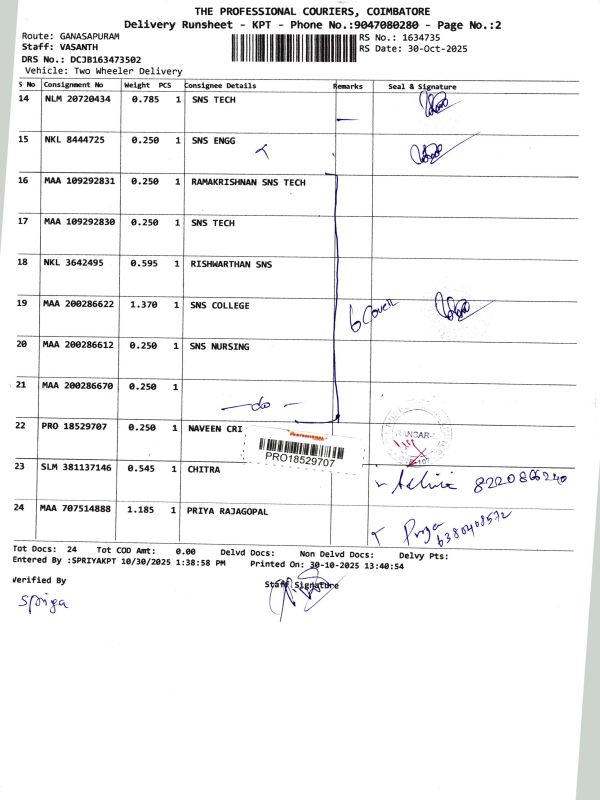 THE PROFESSIONAL COURIERS, COIMBATORE
Delivery Runsheet - KPT - Phone No.:9047080280 - Page No.:2
Route: GANASAPURAM
RS No.: 1634735
Staff: VASANTH
RS Date: 30-Oct-2025
DRS No.: DCJB163473502
Vehicle: Two Wheeler Delivery
S No Consignment No Weight PCS Consignee Details Remarks Seal & Signature
14 NLM 20720434 0.785 1 SNS TECH
15 NKL 8444725 0.250 1 SNS ENGG
16 MAA 109292831 0.250 1 RAMAKRISHNAN SNS TECH
17 MAA 109292830 0.250 1 SNS TECH
18 NKL 3642495 0.595 1 RISHWARTHAN SNS
19 MAA 200286622 1.370 1 SNS COLLEGE
20 MAA 200286612 0.250 1 SNS NURSING
21 MAA 200286670 0.250 1
-do-
22 PRO 18529707 0.250 1 NAVEEN CRI
PRO18529707
23 SLM 381137146 0.545 1 CHITRA
24 MAA 707514888 1.185 1 PRIYA RAJAGOPAL
Priya
6380408572
Tot Docs: 24 Tot COD Amt: 0.00 Delvd Docs: Non Delvd Docs: Delvy Pts:
Entered By :SPRIYAKPT 10/30/2025 1:38:58 PM Printed On: 30-10-2025 13:40:54
Verified By
Staff Signature
Spriya